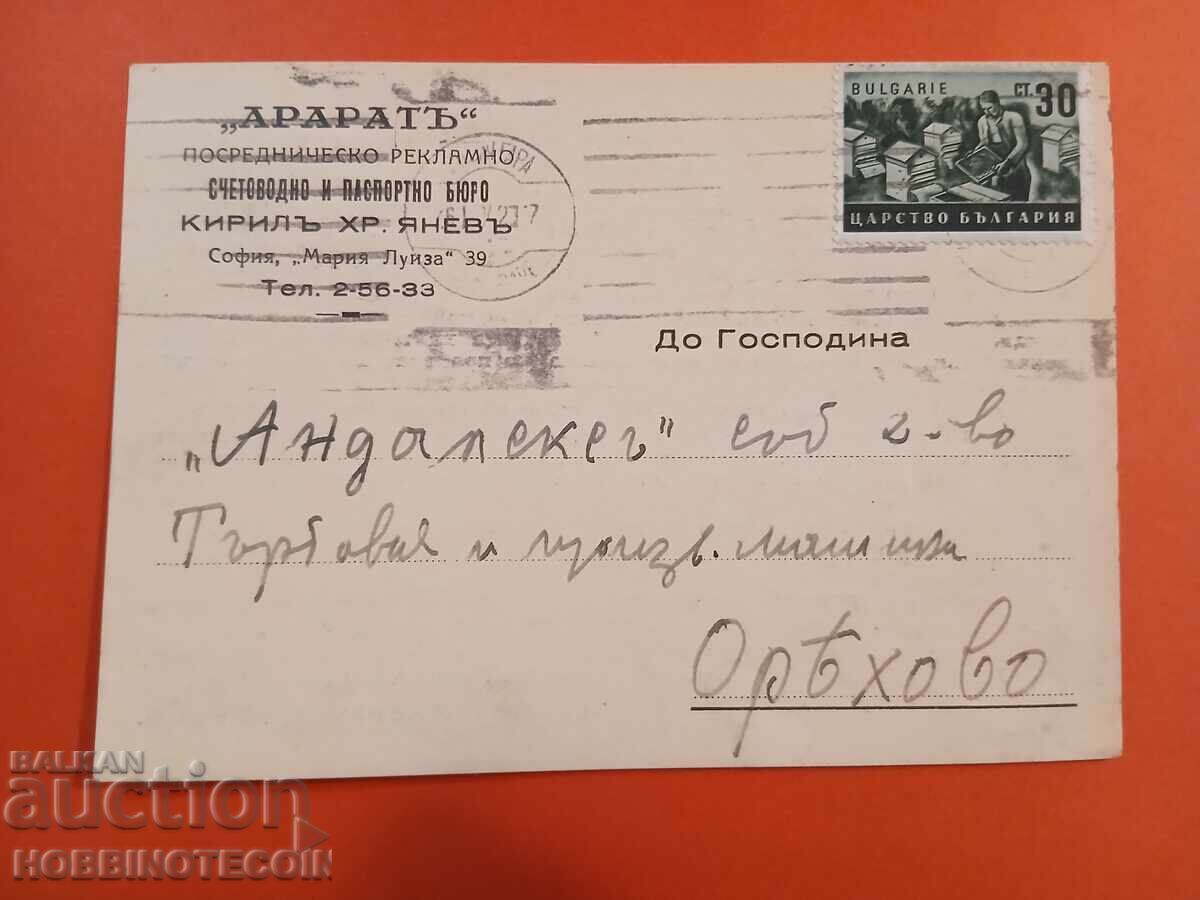 „АРАРАТЪ“
ПОСРЕДНИЧЕСКО РЕКЛАМНО
СЧЕТОВОДНО И ПАСПОРТНО БЮРО
КИРИЛЪ ХР. ЯНЕВЪ
София, „Мария Луиза“ 39
Тел. 2-56-33
BULGARIE СТ. 30
ЦАРСТВО БЪЛГАРИЯ
До Господина
„Андалскег" соб
Търговия и произв.
Орѣхово
BALKAN
auction
HOBBINOTECOIN